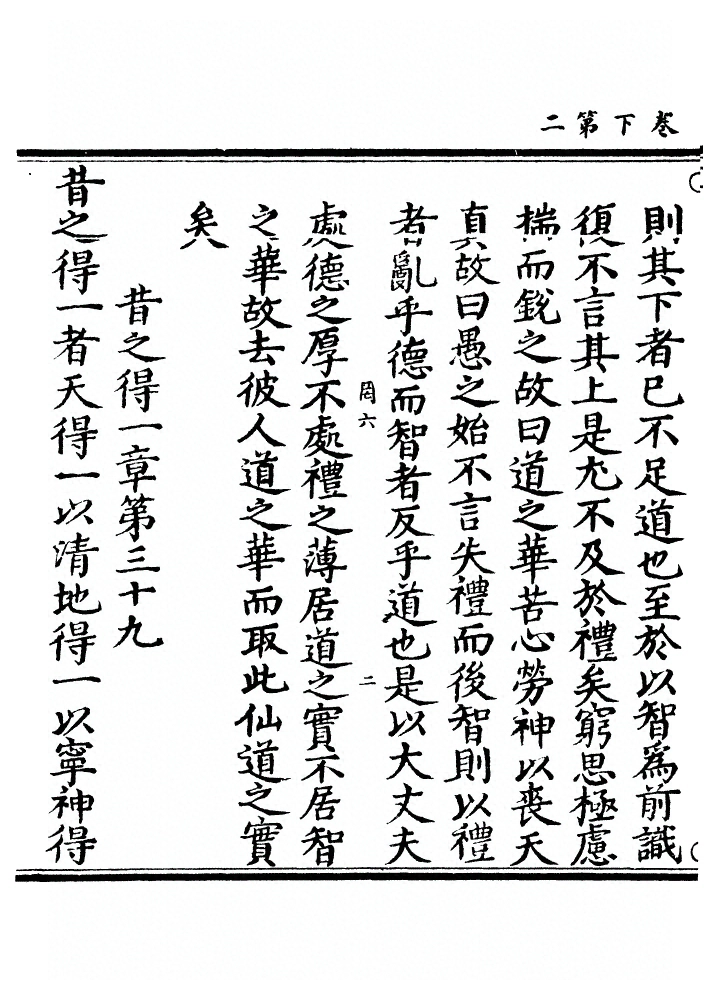 卷下第二
則其下者已不足道也至於以智為前識
復不言其上是尤不及於禮矣窮思極慮
揣而銳之故曰道之華苦心勞神以喪天
真故曰愚之始不言失禮而後智則以禮
者亂乎德而智者反乎道也是以大丈夫
罔六 二
處德之厚不處禮之薄居道之實不居智
之華故去彼人道之華而取此仙道之實
矣
昔之得一章第三十九
昔之得一者天得一以清地得一以寧神得